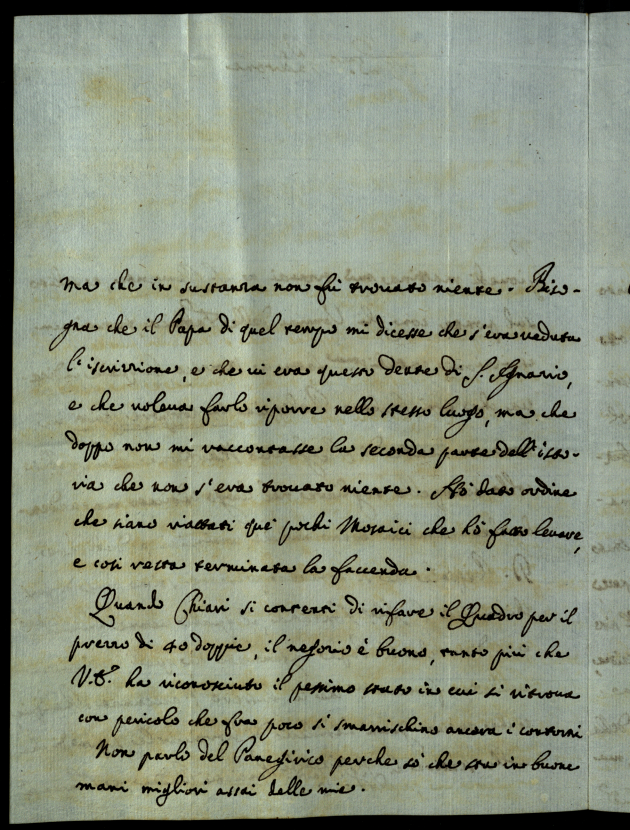 ma che in sustanza non fù trovato niente. Biso-
gna che il Papa di quel tempo mi dicesse che s'era veduta
l'iscrizione, e che vi era questo dente di S. Ignazio,
e che voleva farlo riporre nello stesso luogo, ma che
doppo non mi raccontasse la seconda parte dell'isto-
ria che non s'era trovato niente. Hò dato ordine
che siano riattati que' pochi Mosaici che hò fatto levare,
e così resta terminata la faccenda.
Quando Chiari si contenti di rifare il Quadro per il
prezzo di 40 doppie, il negozio è buono, tanto più che
ha riconosciuto il pessimo stato in cui si ritrova
con pericolo che fra poco si smarrischino ancora i contorni
Non parlo del Panegirico perche sò che sta in buone
mani migliori assai delle mie.